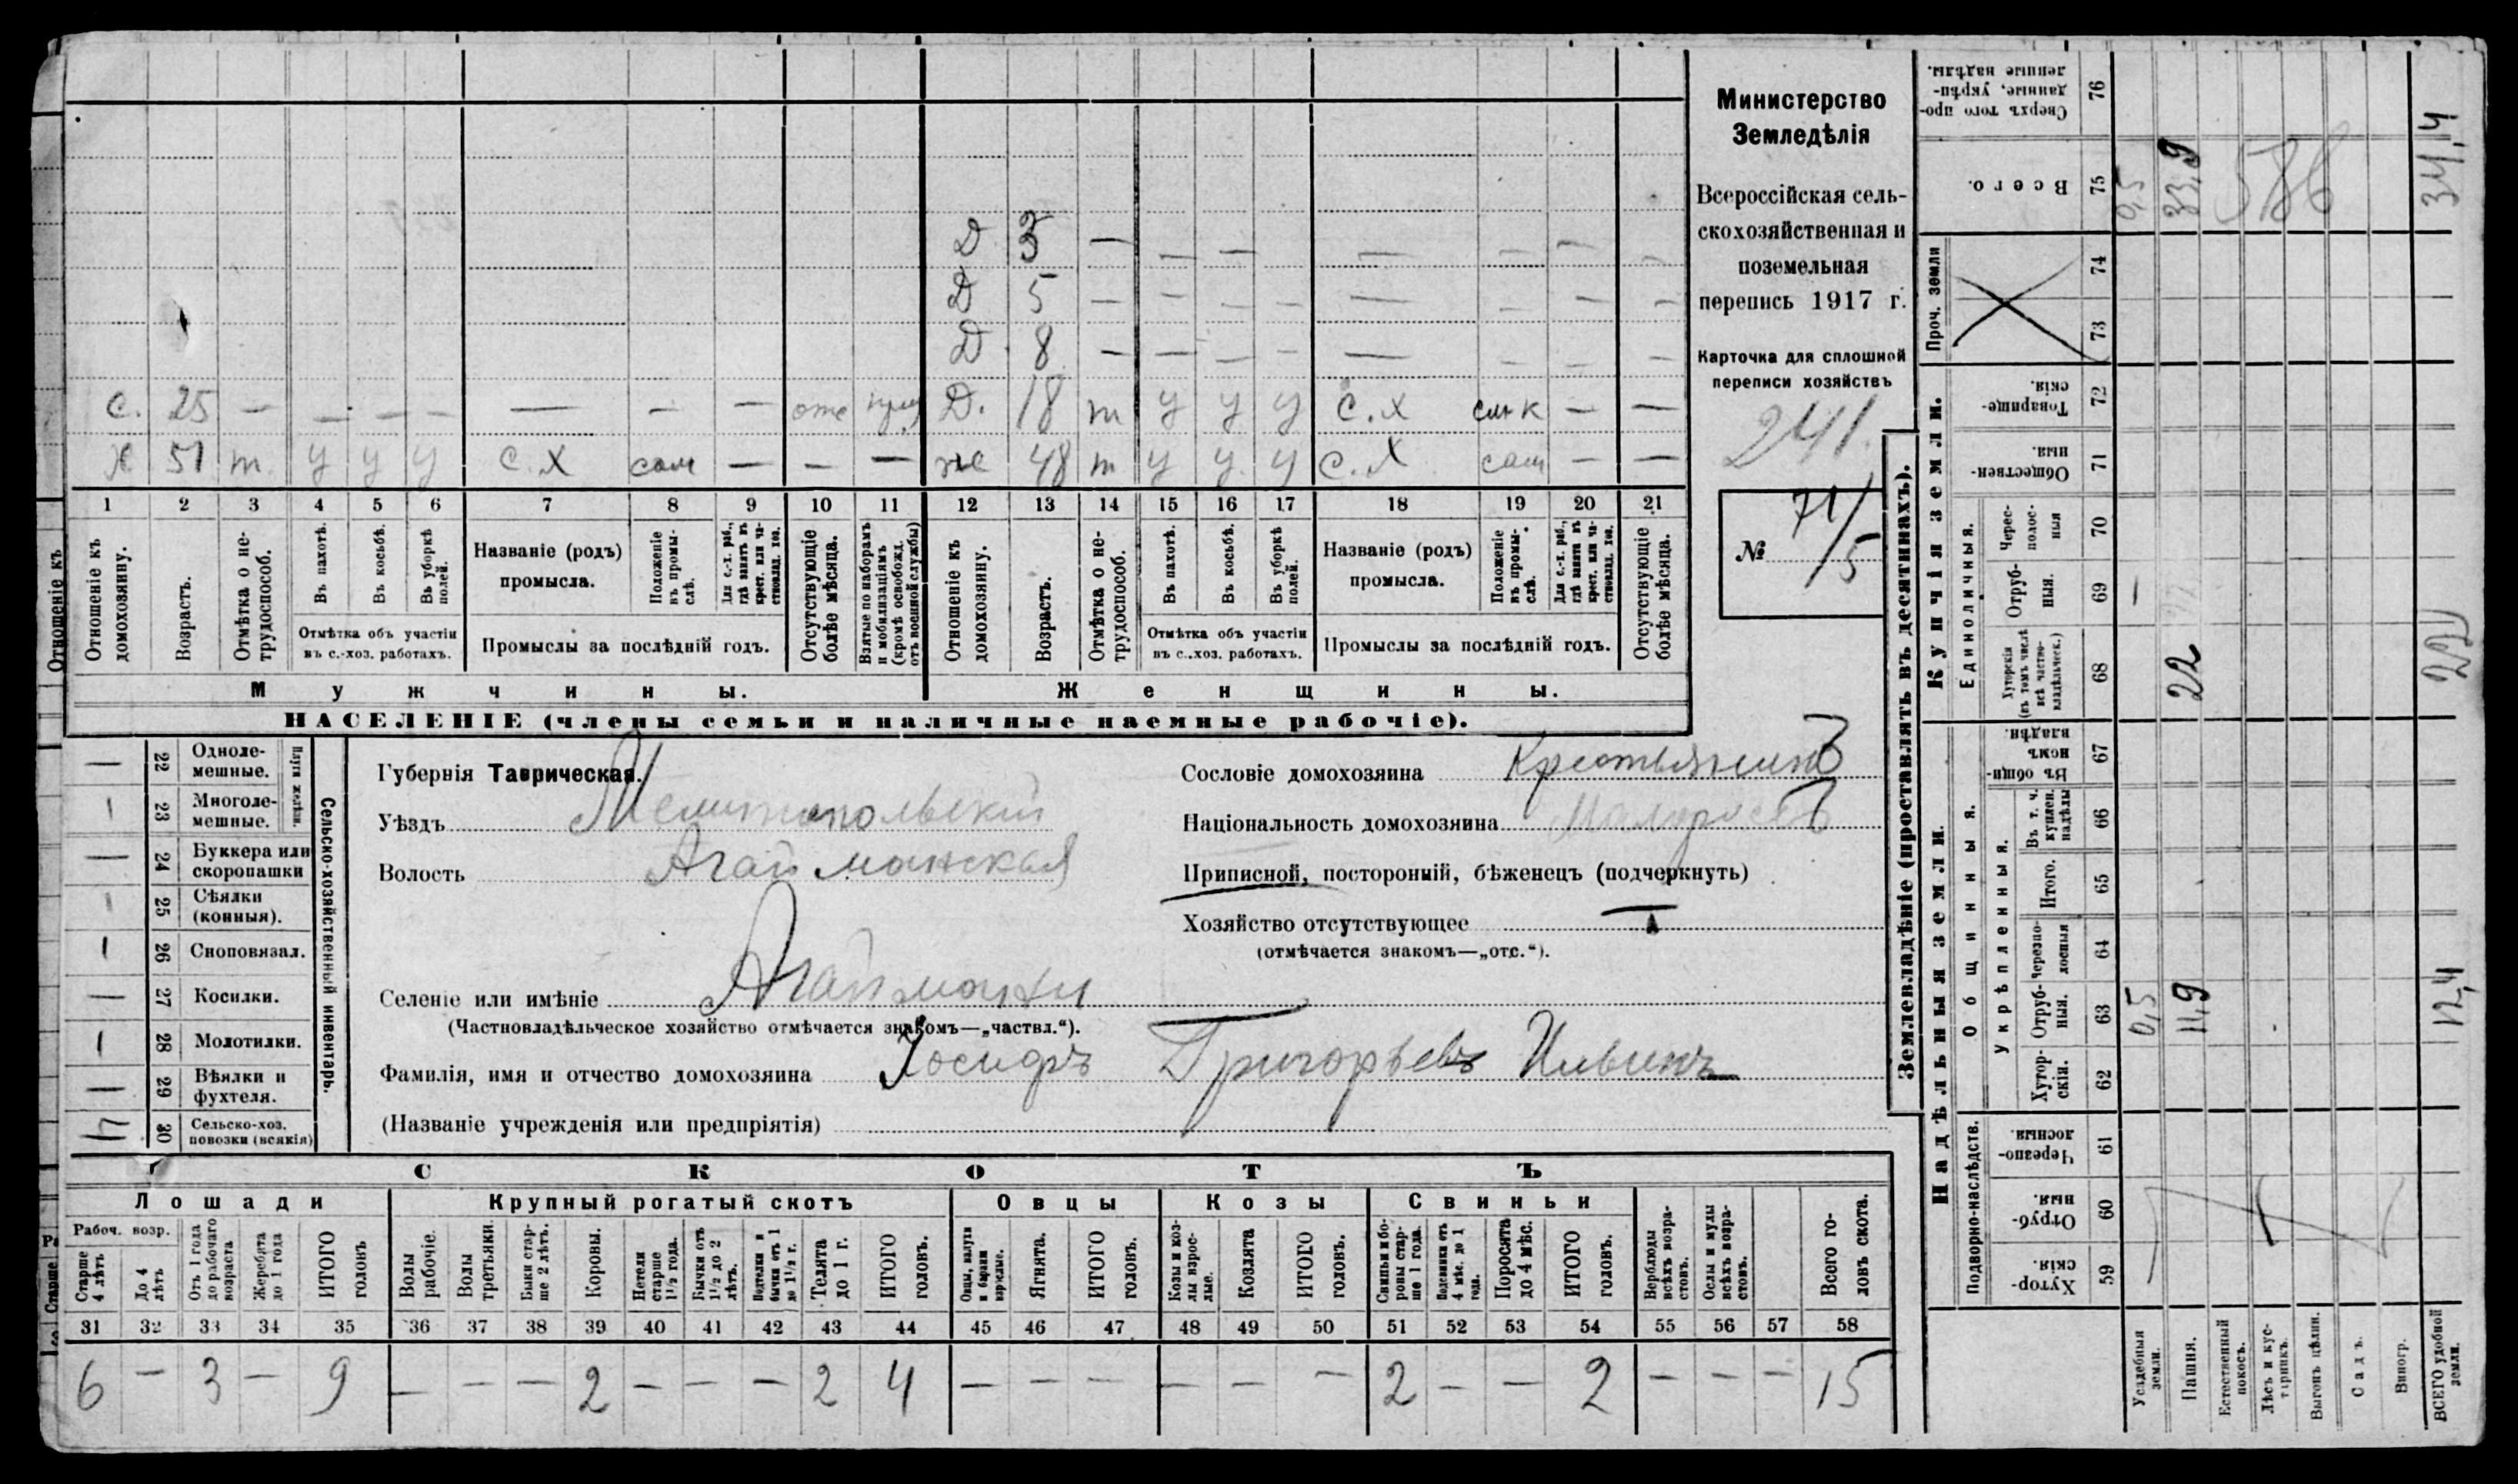 Министерство
Земледѣлія
Всероссійская сель-
скохозяйственная и
поземельная
перепись 1917 г.
Карточка для сплошной
переписи хозяйствъ
241.
№ 71/5
Д 3 — — — — — — — —
Д 5 — — — — — — — —
Д 8 — — — — — — — —
С. 25 — — — — — — — отс Д. 18 т у у у С. Х — —
Х 51 т. у у у С. Х сам — — — же 48 т у у у С. Х сам — —
1 2 3 4 5 6 7 8 9 10 11 12 13 14 15 16 17 18 19 20 21
Отношеніе къ домохозяину.
Возрастъ.
Отмѣтка о не-трудоспособ.
Въ пахотѣ.
Въ косьбѣ.
Въ уборкѣ полей.
Отмѣтка объ участіи въ с.-хоз. работахъ.
Названіе (родъ) промысла.
Положеніе въ промы-слѣ.
Для с.-х. раб., гдѣ занятъ въ крест. или ча-стновлад. хоз.
Промыслы за послѣдній годъ.
Отсутствующіе болѣе мѣсяца.
Взятые по наборамъ и мобилизаціямъ (кромѣ освобожд. отъ военной службы)
Отношеніе къ домохозяину.
Возрастъ.
Отмѣтка о не-трудоспособ.
Въ пахотѣ.
Въ косьбѣ.
Въ уборкѣ полей.
Отмѣтка объ участіи въ с.-хоз. работахъ.
Названіе (родъ) промысла.
Положеніе въ промы-слѣ.
Для с.-х. раб., гдѣ занята въ крест. или ча-стновлад. хоз.
Промыслы за послѣдній годъ.
Отсутствующіе болѣе мѣсяца.
Мужчины. Женщины.
НАСЕЛЕНІЕ (члены семьи и наличные наемные рабочіе).
Сельско-хозяйственный инвентарь.
Плуги желѣзн.
— 22 Одноле-мешные.
1 23 Многоле-мешные.
— 24 Буккера или скоропашки
1 25 Сѣялки (конныя).
1 26 Сноповязал.
— 27 Косилки.
1 28 Молотилки.
— 29 Вѣялки и фухтеля.
30 Сельско-хоз. повозки (всякія)
Губернія Таврическая.
Уѣздъ Мелитопольскій
Волость Агайманская
Селеніе или имѣніе Агайманы
(Частновладѣльческое хозяйство отмѣчается знакомъ—„частвл.“).
Фамилія, имя и отчество домохозяина Іосифъ Григорьевъ Ильинъ
(Названіе учрежденія или предпріятія)
Сословіе домохозяина Крестьянинъ
Національность домохозяина Малороссъ
Приписной, посторонній, бѣженецъ (подчеркнуть)
Хозяйство отсутствующее —
(отмѣчается знакомъ—„отс.“).
СКОТЪ
Лошади Крупный рогатый скотъ Овцы Козы Свиньи
Рабоч. возр.
Старше 4 лѣтъ
До 4 лѣтъ
Отъ 1 года до рабочаго возраста
Жеребята до 1 года
ИТОГО головъ
Волы рабочіе.
Волы третьяки.
Быки стар-ше 2 лѣтъ.
Коровы.
Нетели старше 1 1/2 года.
Бычки отъ 1 1/2 до 2 лѣтъ.
Подтелки и бычки отъ 1 до 1 1/2 г.
Телята до 1 г.
ИТОГО головъ.
Овцы, валухи и бараны взрослые.
Ягнята.
ИТОГО головъ.
Козы и коз-лы взрос-лые.
Козлята
ИТОГО головъ.
Свиньи и бо-ровы стар-ше 1 года.
Подсвинки отъ 4 мѣс. до 1 года.
Поросята до 4 мѣс.
ИТОГО головъ.
Верблюды всѣхъ возра-стовъ.
Ослы и мулы всѣхъ возра-стовъ.
Всего го-ловъ скота.
31 32 33 34 35 36 37 38 39 40 41 42 43 44 45 46 47 48 49 50 51 52 53 54 55 56 57 58
6 — 3 — 9 — — — 2 — — — 2 4 — — — — — — 2 — — 2 — — — 15
Землевладѣніе (проставлять въ десятинахъ).
Надѣльныя земли. Купчія земли. Проч. земли
Подворно-наслѣдств.
Общинныя.
Укрѣпленныя.
Единоличныя.
59 Хутор-скія.
60 Отруб-ныя.
61 Черезпо-лосныя.
62 Хутор-скія.
63 Отруб-ныя.
64 Черезпо-лосныя
65 Итого.
66 Въ т. ч. куплен. надѣлы
67 Въ общин-номъ владѣн.
68 Хуторскія (въ томъ числѣ всѣ частно-владѣльческ.)
69 Отруб-ныя.
70 Черес-полос-ныя
71 Обществен-ныя.
72 Товарище-скія.
73
74
75 Всего.
76 Сверхъ того про-данные, укрѣп-ленные надѣлы.
Усадебныя земли. 0,5 — 0,5
Пашня. 11,9 22 33,9
Естественный покосъ.
Лѣсъ и кус-тарникъ.
Выгонъ цѣлин.
Садъ.
Виногр.
ВСЕГО удобной земли. 12,4 34,4
586